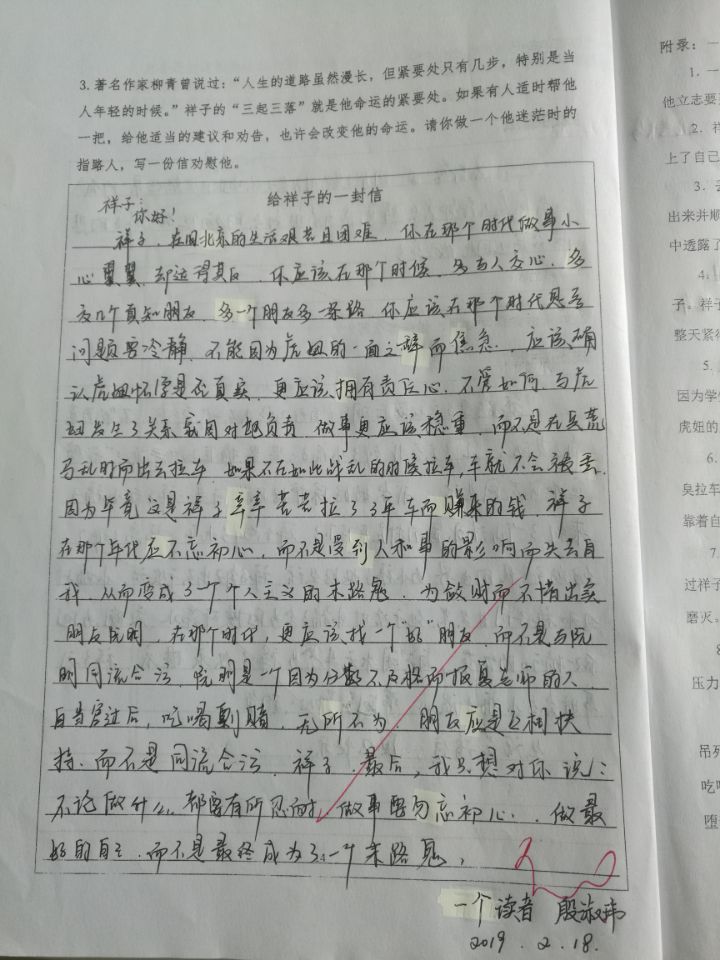 3.著名作家柳青曾说过：“人生的道路虽然漫长，但紧要处只有几步，特别是当
人年轻的时候。”祥子的“三起三落”就是他命运的紧要处。如果有人适时帮他
一把，给他适当的建议和劝告，也许会改变他的命运。请你做一个他迷茫时的
指路人，写一份信劝慰他。
给祥子的一封信
祥子：
你好！
祥子，在旧北京的生活艰苦且困难，你在那个时代做事小
心翼翼，却适得其反，你应该在那个时候，多与人交心，多
交几个真知朋友，多一个朋友多一条路，你应该在那个时代思考
问题要冷静，不能因为虎妞的一面之辞而焦急，应该确
认虎妞怀孕是否真实，更应该拥有责任心，不管如何，与虎
妞发生了关系就因对她负责，做事更应该稳重，而不是在兵荒
马乱时而出去拉车，如果不在如此战乱的时候拉车，车就不会被丢，
因为毕竟这是祥子辛辛苦苦拉了3年车而赚来的钱，祥子
在那个年代应不忘初心，而不是受到人和事的影响而失去自
我，从而变成了一个个人主义的末路鬼，为敛财而不惜出卖
朋友阮明，在那个时代，更应该找一个“好”朋友，而不是与阮
明同流合污，阮明是一个因为分数不及格而报复老师的人，
自当官过后，吃喝剽赌，无所不为，朋友应是互相扶
持，而不是同流合污，祥子，最后，我只想对你说：
不论做什么，都要有所忍耐，做事要勿忘初心，做最
好的自己，而不是最终成为了一个末路鬼，
一个读者 殷淑玮
2019.2.18.
附录：一
1.一
他立志要
2.祥
上了自己
3.
出来并顺
中透露了
4.
子。祥子
整天紧
5.
因为学
虎妞的
6.
臭拉车
靠着自
7
过祥子
磨灭。
8
压力
吊死
吃
堕